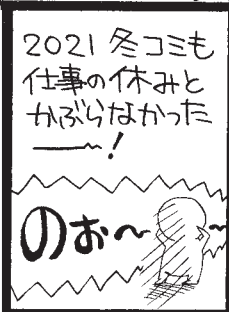 2021 冬コミも
仕事の休みと
かぶらなかった
――！
のぉ〜